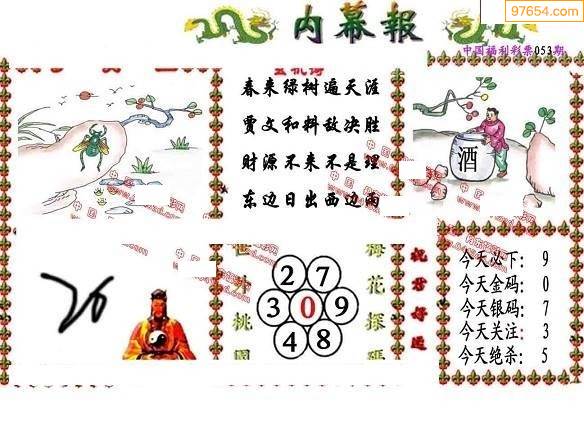 97654.com
内幕報
中国福利彩票053期
春来绿树遍天涯
贾文和料敌决胜
财源不来不是理
东边日出西边雨
酒
世外桃園
2 7
3 0 9
4 8
梅花探碼
祝君好运
今天必下: 9
今天金码: 0
今天银码: 7
今天关注: 3
今天绝杀: 5